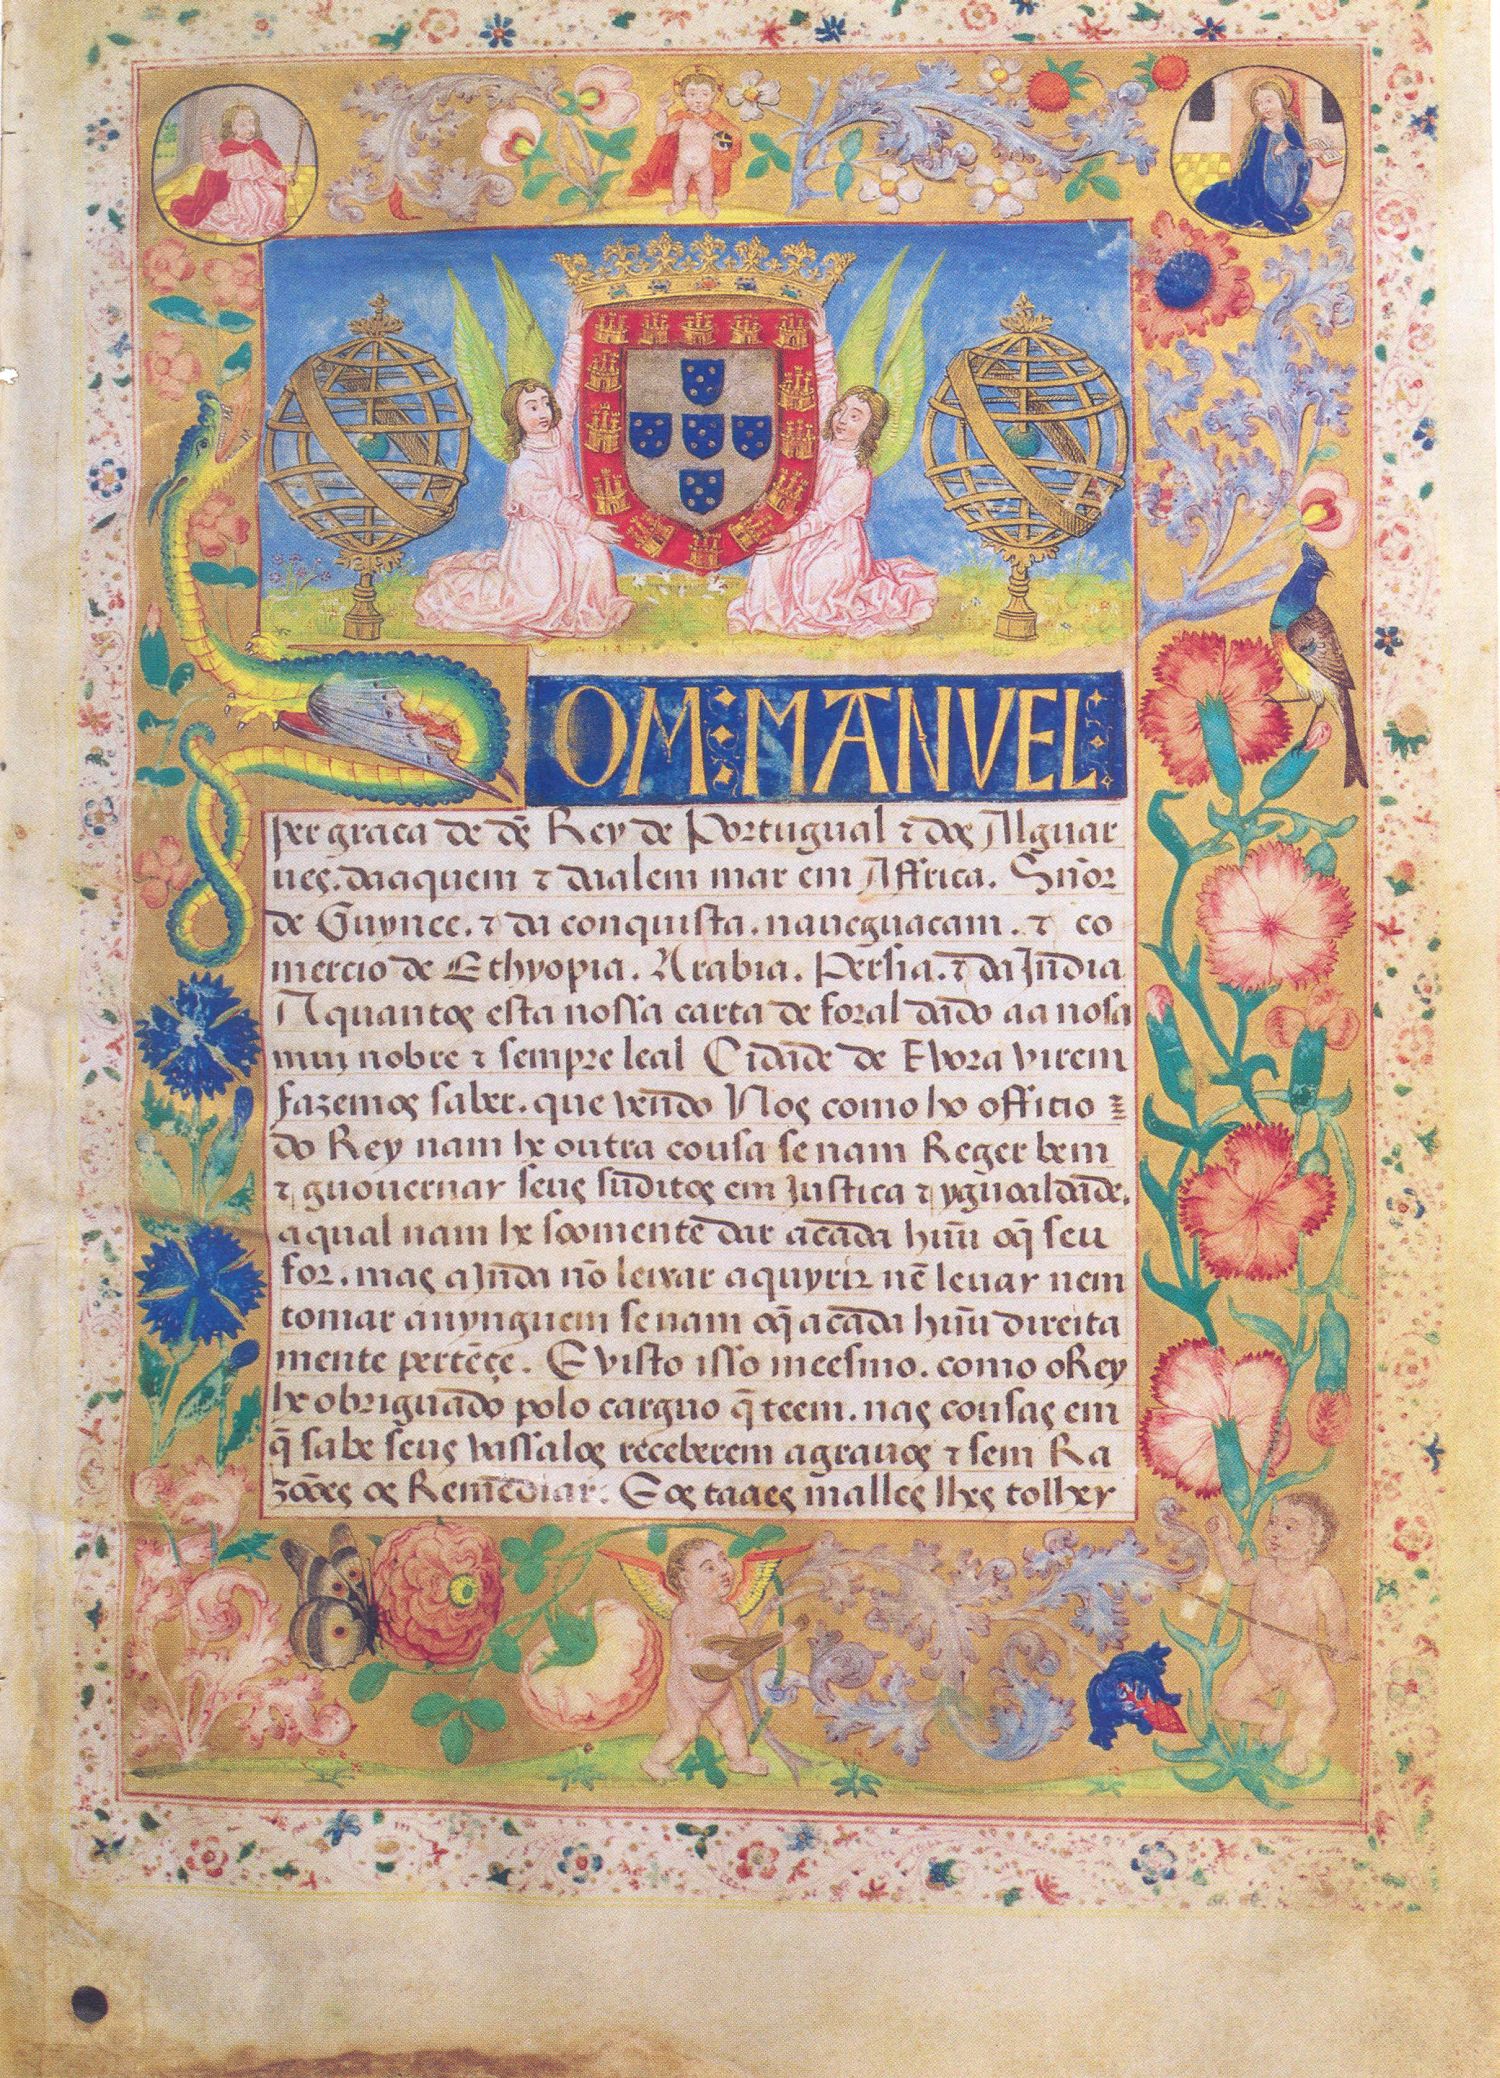 DOM: MANVEL:
per graca de ds̃ Rey de Portugual ⁊ dos Alguar
ues. daaquem ⁊ daalem mar em Affrica. Sñor
de Guynee. ⁊ da conquista. naueguacam. ⁊ co
mercio de Ethyopia. Arabia. Persia. ⁊ da Jndia
A quantos esta nossa carta de foral dado aa nosa
muy nobre ⁊ sempre leal Cidade de Euora virem
fazemos saber. que vendo Nos como ho officio
do Rey nam he outra cousa se nam Reger bem
⁊ guouernar seus suditos em Justica ⁊ ygualdade.
a qual nam he soomente dar a cada huũ o q̃ seu
for. mas a Jnda nõ leixar a quyrir nẽ leuar nem
tomar a nynguem se nam o q̃ a cada huũ direita
mente pertẽçe. E visto isso meesmo. como o Rey
he obriguado polo carguo q̃ teem. nas cousas em
q̃ sabe seus vassalos receberem agrauos ⁊ sem Ra
zoões os Remediar. E os taaes malles lhes tolher